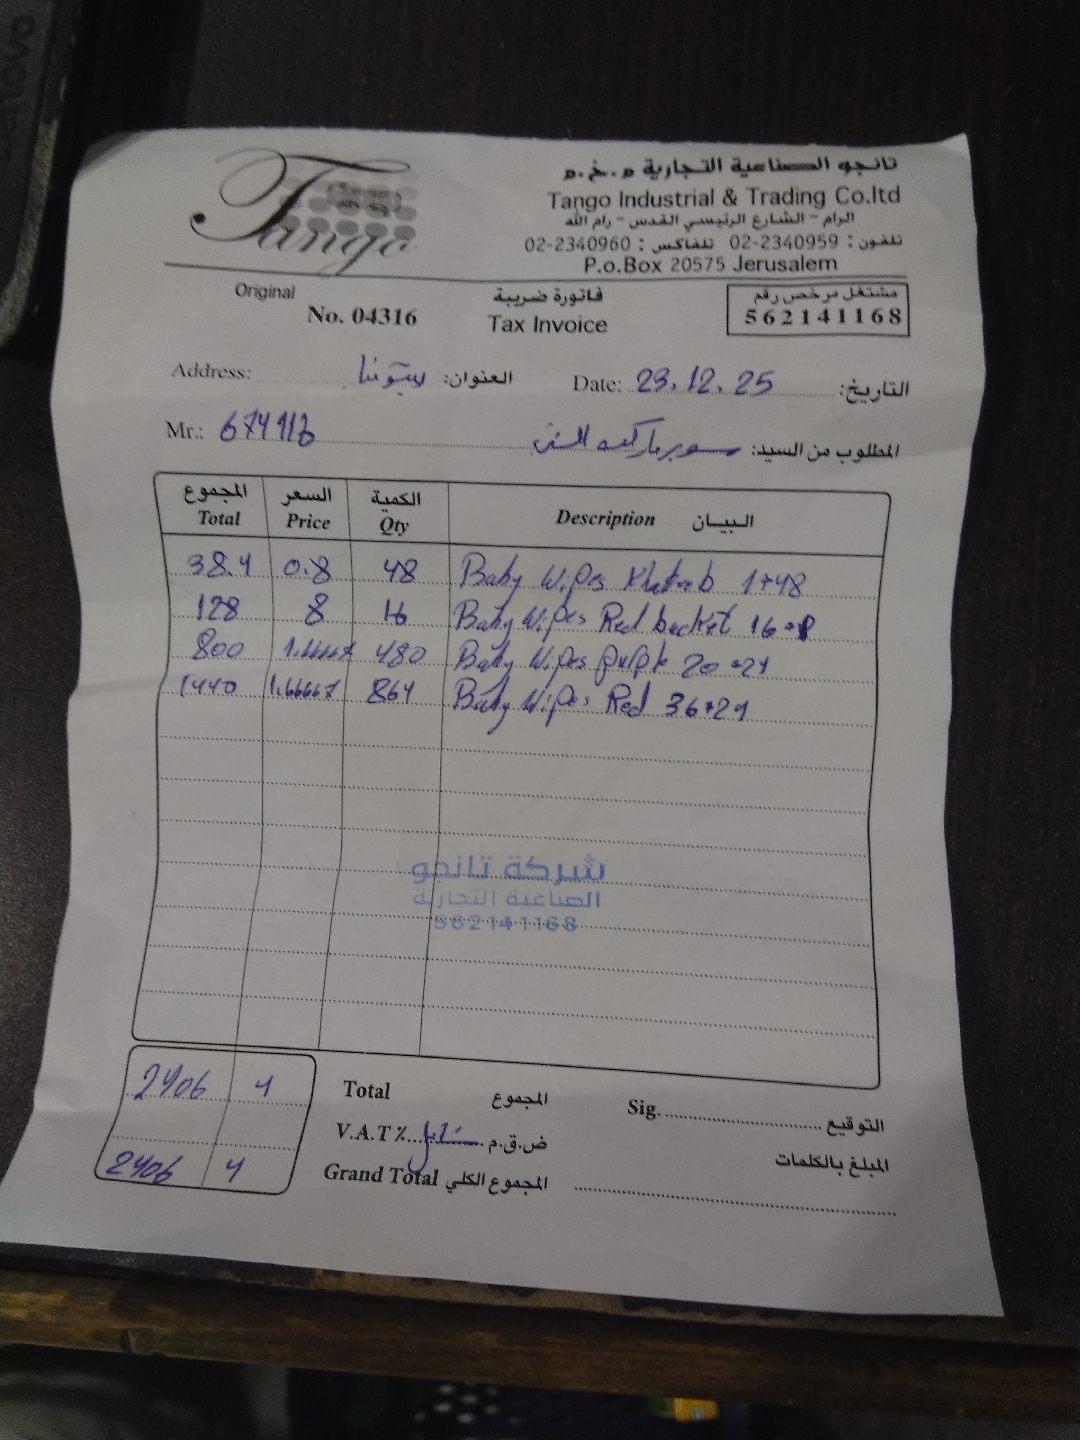 Tango
تانجو الصناعية التجارية م.خ.م
Tango Industrial & Trading Co.ltd
الرام - الشارع الرئيسي القدس - رام الله
تلفون : 02-2340959 تلفاكس : 02-2340960
P.o.Box 20575 Jerusalem
Original
No. 04316
فاتورة ضريبة
Tax Invoice
مشتغل مرخص رقم
562141168
Address: العنوان:
Date: 29.12.25 التاريخ:
Mr.: المطلوب من السيد: سوبرماركت
المجموع السعر الكمية
Total Price Qty Description البيان
38.4 0.8 48 Baby Wipes 1*48
128 8 16 Baby Wipes Red bucket 16*
800 1.66667 480 Baby Wipes purple 20*24
1440 1.66667 864 Baby Wipes Red 36*24
شركة تانجو
الصناعية التجارية
562141168
2406 4 Total المجموع
Sig. التوقيع
V.A.T٪ شامل ض.ق.م
المبلغ بالكلمات
2406 4 Grand Total المجموع الكلي